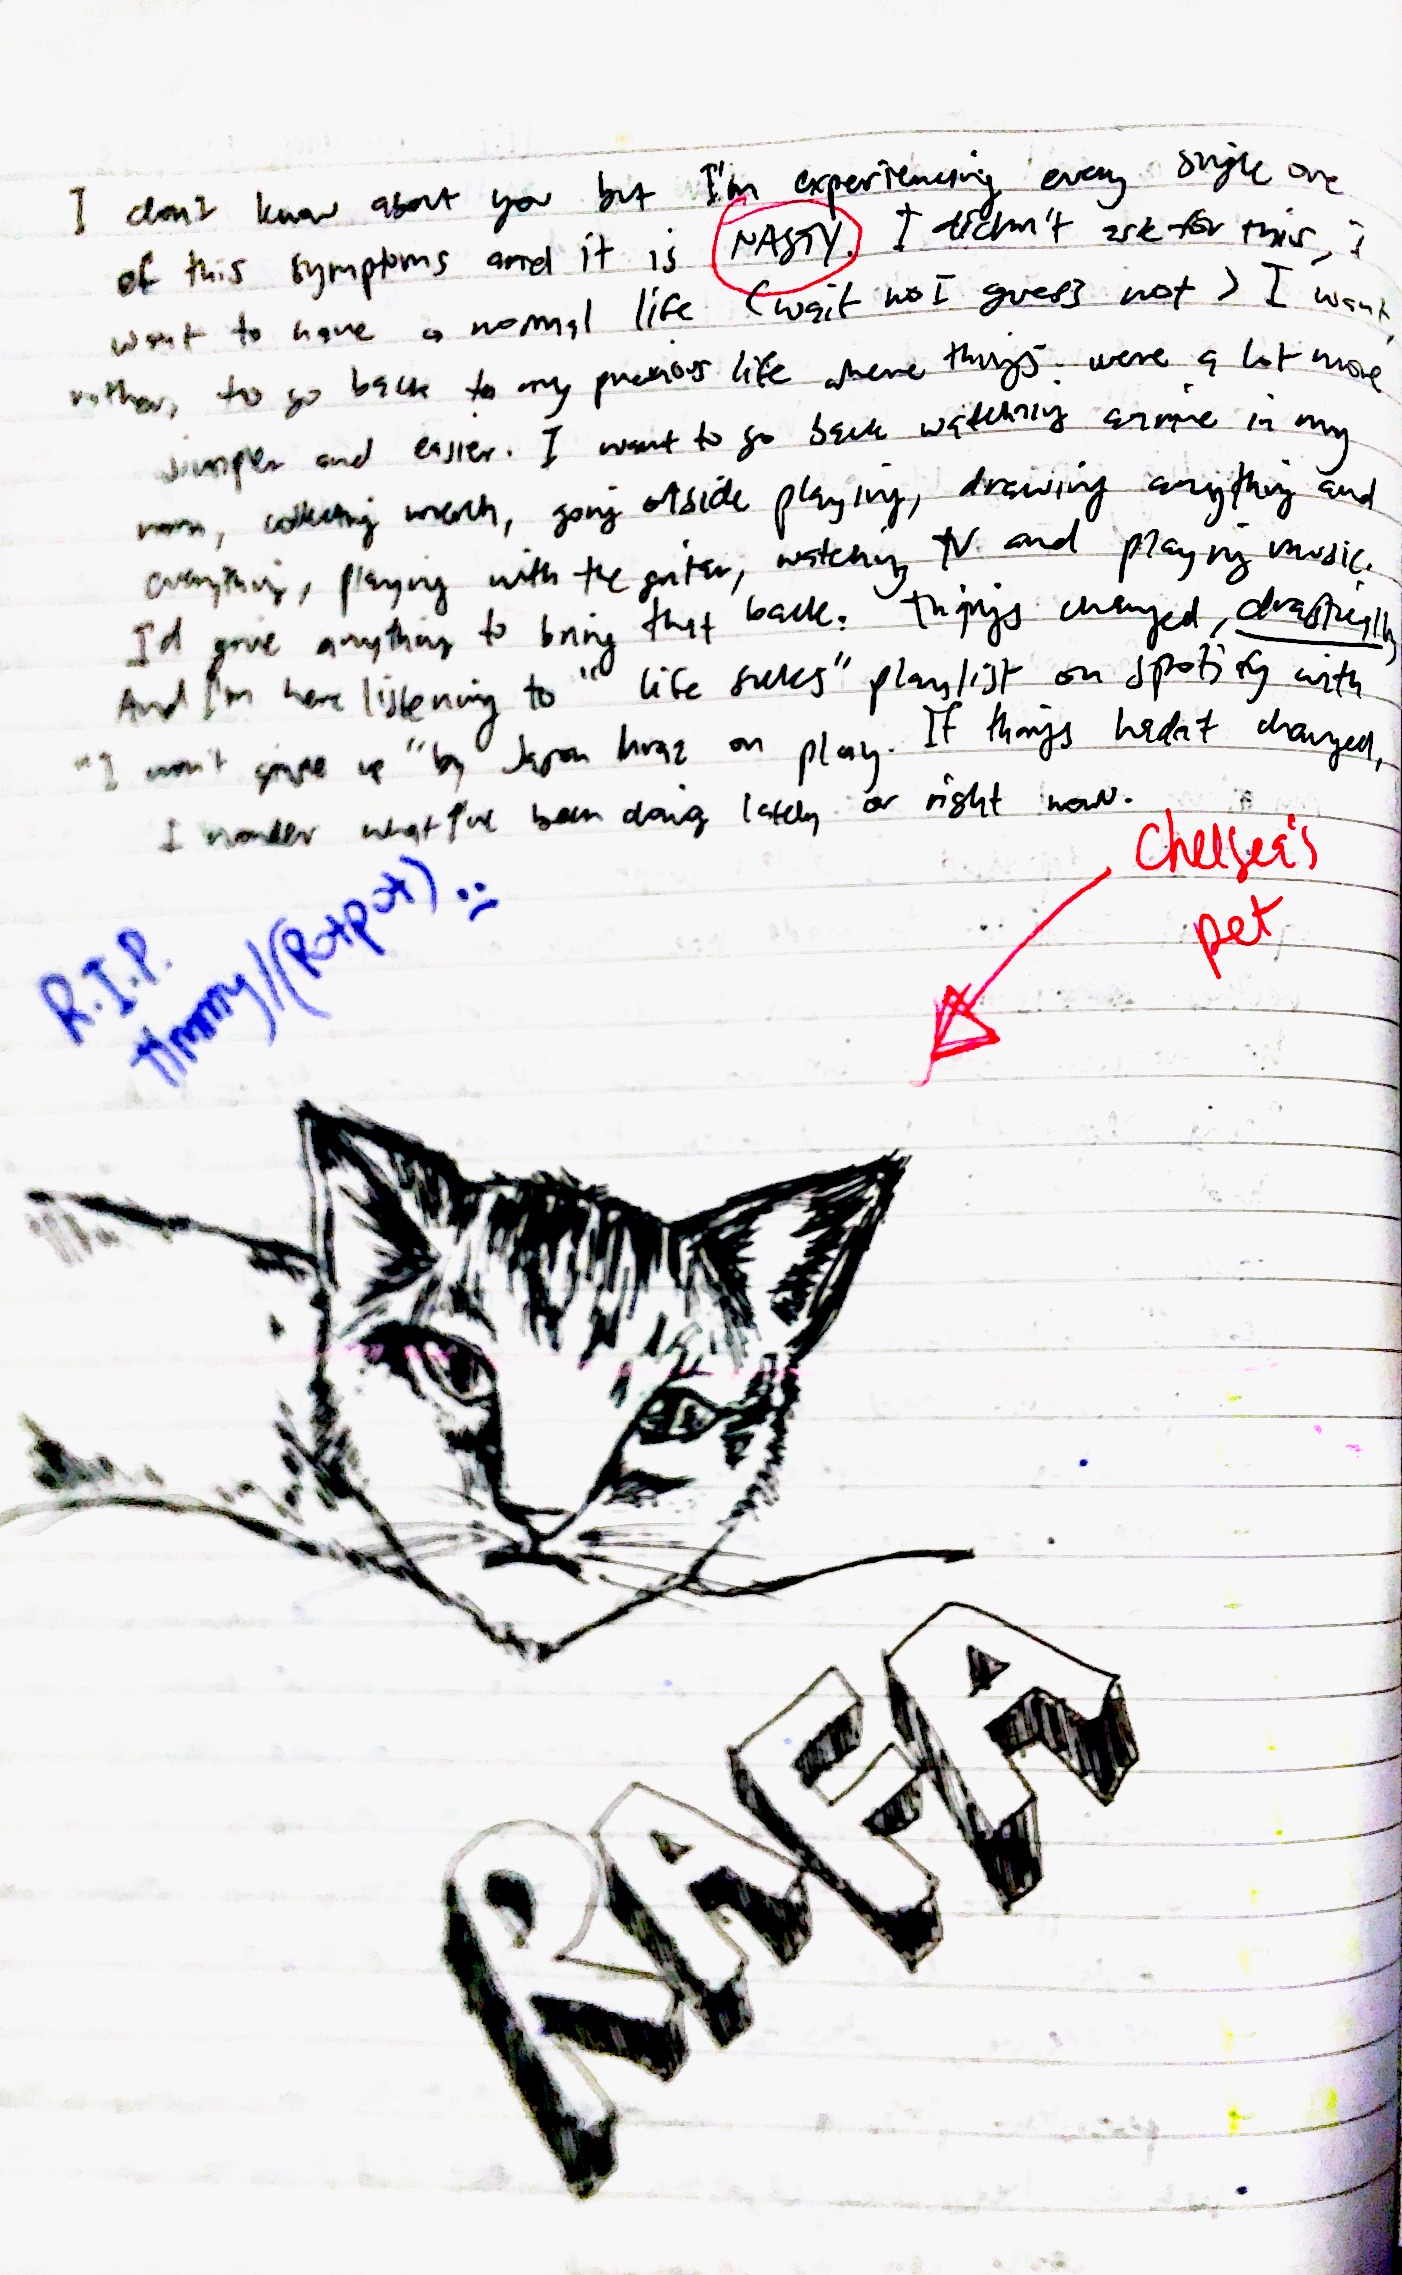 I don't know about you but I'm experiencing every single one
of this symptoms and it is NASTY. I didn't ask for this, I
want to have a normal life (wait no I guess not) I want,
rather, to go back to my previous life where things were a lot more
simpler and easier. I want to go back watching anime in my
room, collecting merch, going otside playing, drawing anything and
everything, playing with the guitar, watching TV and playing music.
I'd give anything to bring that back. Things changed, drastically
And I'm here listening to "life sucks" playlist on spotify with
"I won't give up" by Jason Mraz on play. If things hadn't changed,
I wonder what I've been doing lately or right now.
Chelsea's
pet
R.I.P.
Timmy/(Potpot) :(
RAFA